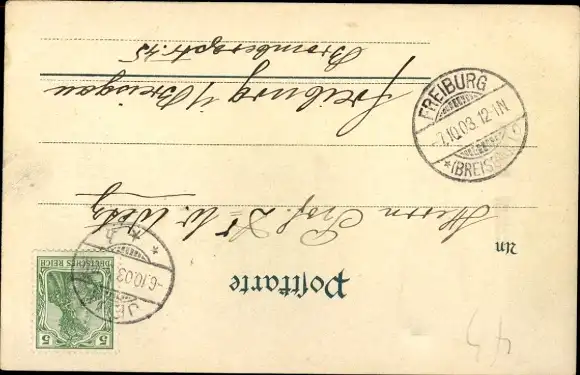 Postkarte
An
Herrn Prof. Dr. W. Wetz
Freiburg i/Breisgau
Brombergstr. 45
DEUTSCHES REICH
5 5
JE
-6.10.03
FREIBURG
-7.10.03. 12-1N.
*(BREISGAU)